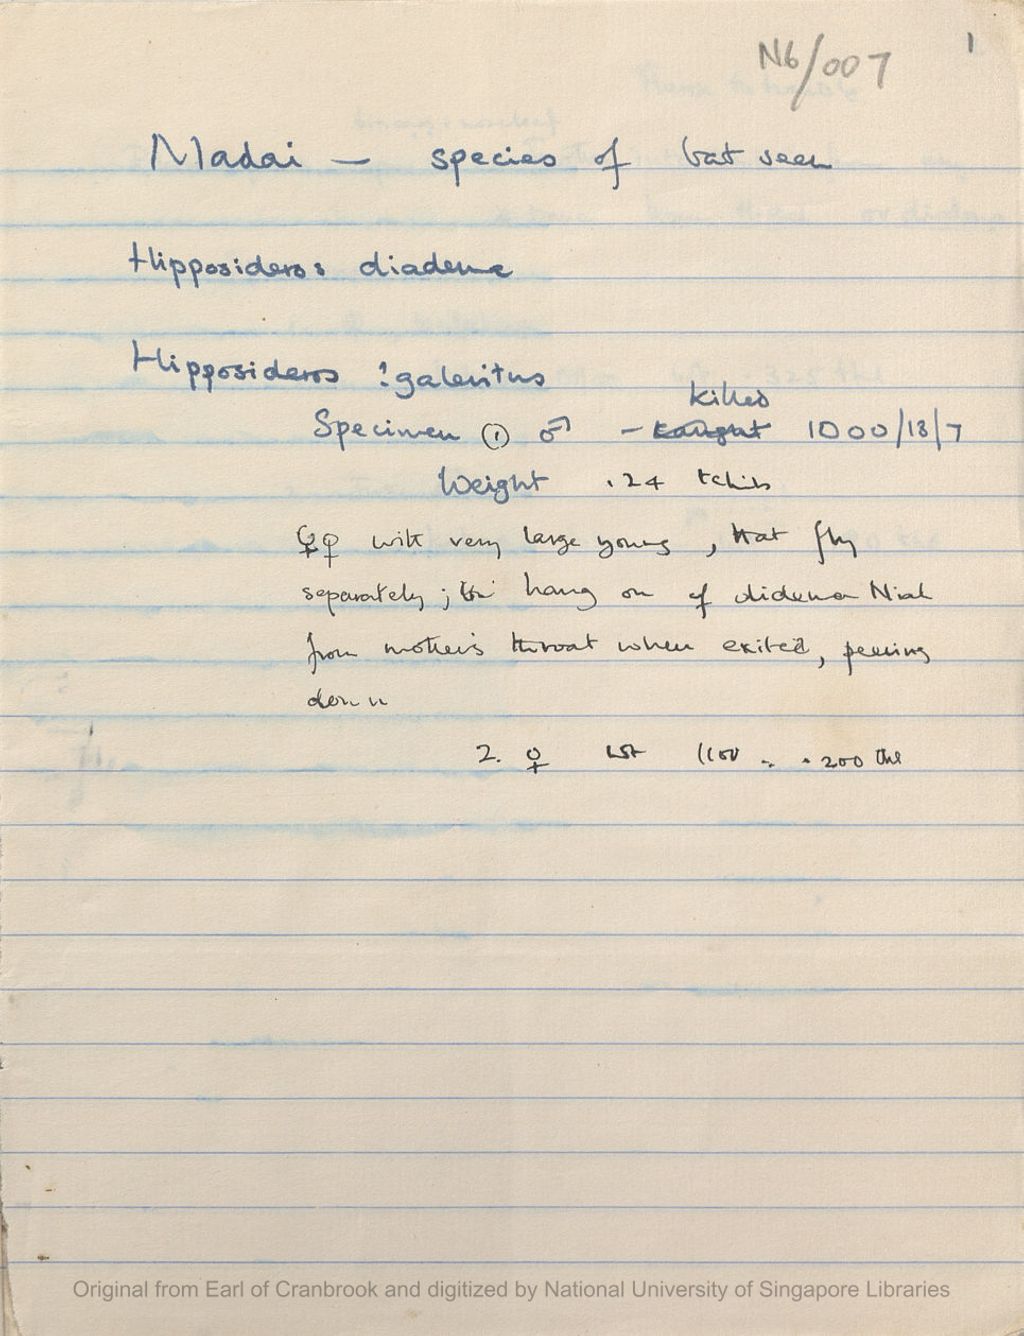 N6/007 1
Madai — species of bat seen
Hipposideros diadema
Hipposideros ?galeritus
killed
Specimen ① ♂ – caught 1000/13/7
Weight .24
♀♀ with very large young, that fly
separately; hang on of didema Niah
from mother's throat when exited, peering
down
2. ♀ 1100 .200
Original from Earl of Cranbrook and digitized by National University of Singapore Libraries